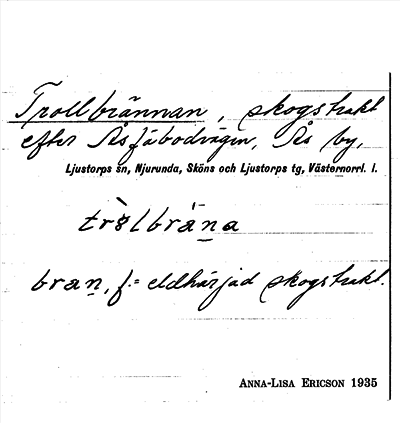 Trollbrännan, skogstrakt
efter Åsfäbodvägen, Ås by,
Ljustorps sn, Njurunda, Sköns och Ljustorps tg, Västernorrl. l.
bran, f. = eldhärjad skogstrakt.
ANNA-LISA ERICSON 1935